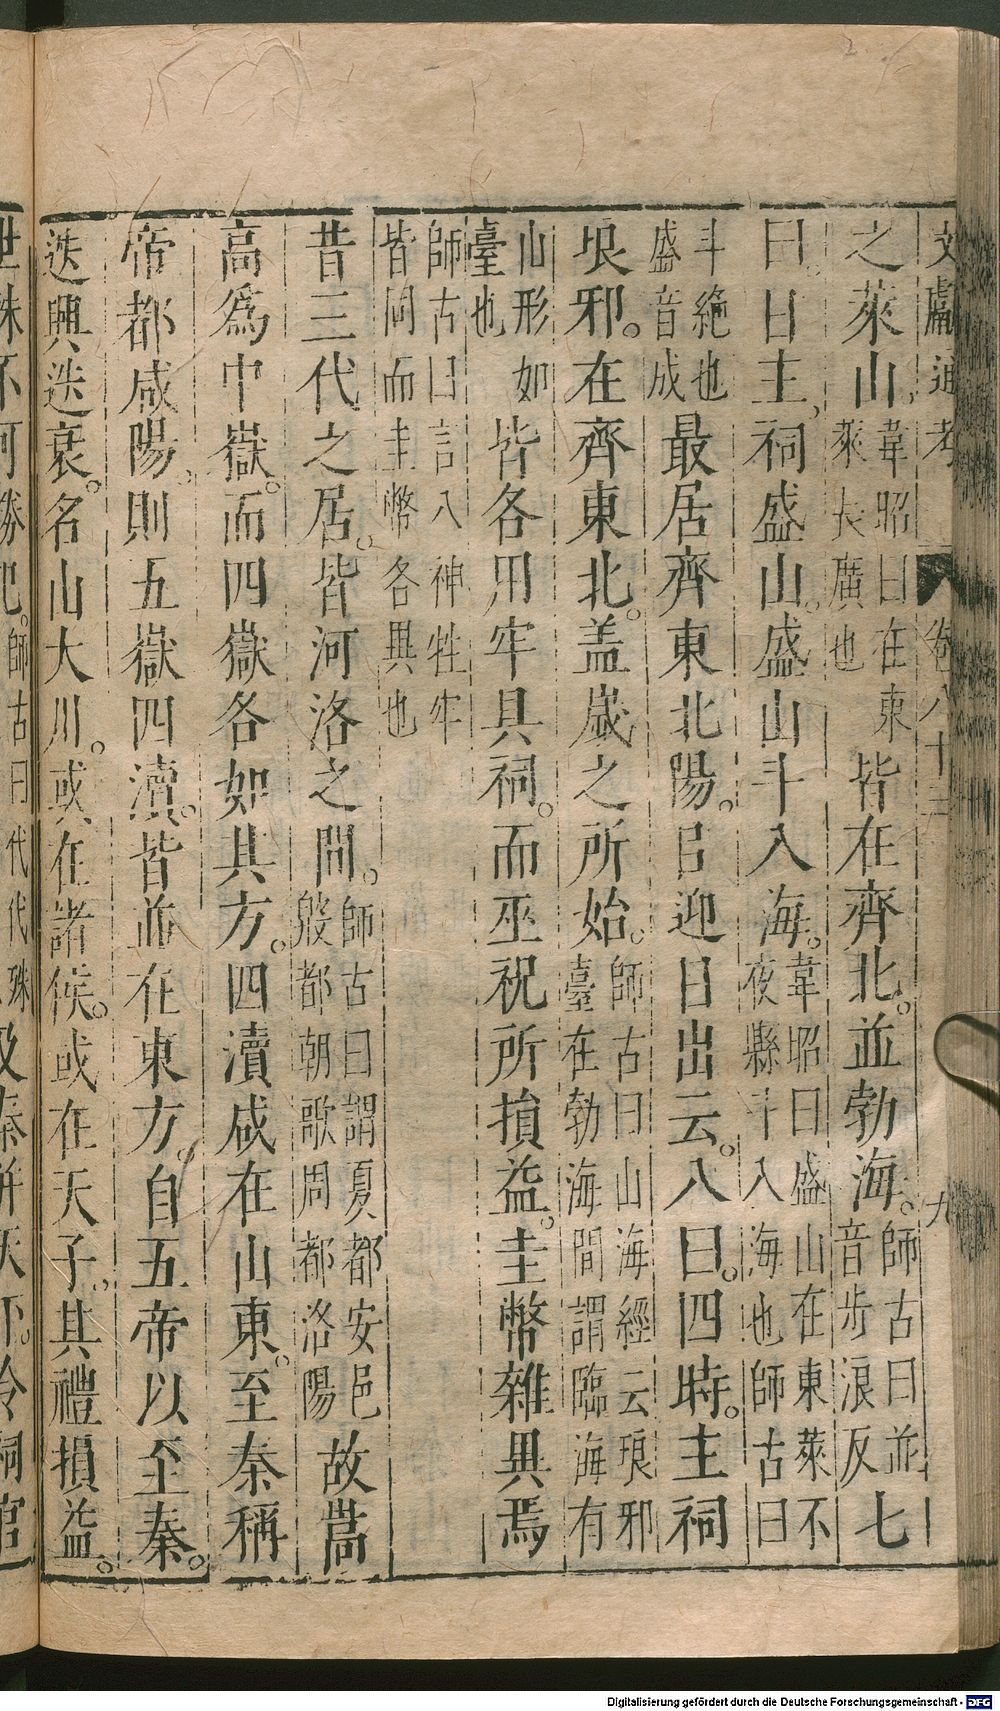 文獻通考 卷八十三 九
之萊山韋昭曰在東萊長廣也皆在齊北。並勃海。師古曰並音步浪反七
曰。日主,祠盛山。盛山斗入海。韋昭曰盛山在東萊不夜縣斗入海也師古曰
斗絶也盛音成最居齊東北陽。㠯迎日出云。八曰。四時。主祠
垠邪。在齊東北。盖嵗之所始。師古曰山海經云琅邪臺在勃海間謂臨海有
山形如臺也皆各用牢具祠。而巫祝所損益。圭幣雜異焉
師古曰言八神牲牢皆同而圭幣各異也
昔三代之居。皆河洛之間。師古曰謂夏都安邑殷都朝歌周都洛陽故嵩
高爲中嶽。而四嶽各如其方。四瀆咸在山東。至秦稱
帝都咸陽。則五嶽四瀆。皆並在東方。自五帝以至秦。
迭興迭衰。名山大川。或在諸侯。或在天子。其禮損益。
世殊不可勝記。師古曰代代殊及秦併天下。令祠官
Digitalisierung gefördert durch die Deutsche Forschungsgemeinschaft - DFG